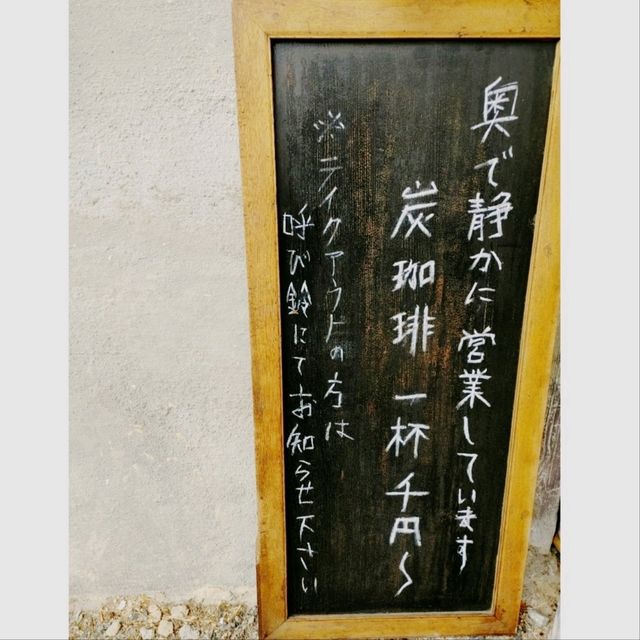 奥で静かに営業しています
炭珈琲 一杯千円〜
※テイクアウトの方は
呼び鈴にてお知らせ下さい